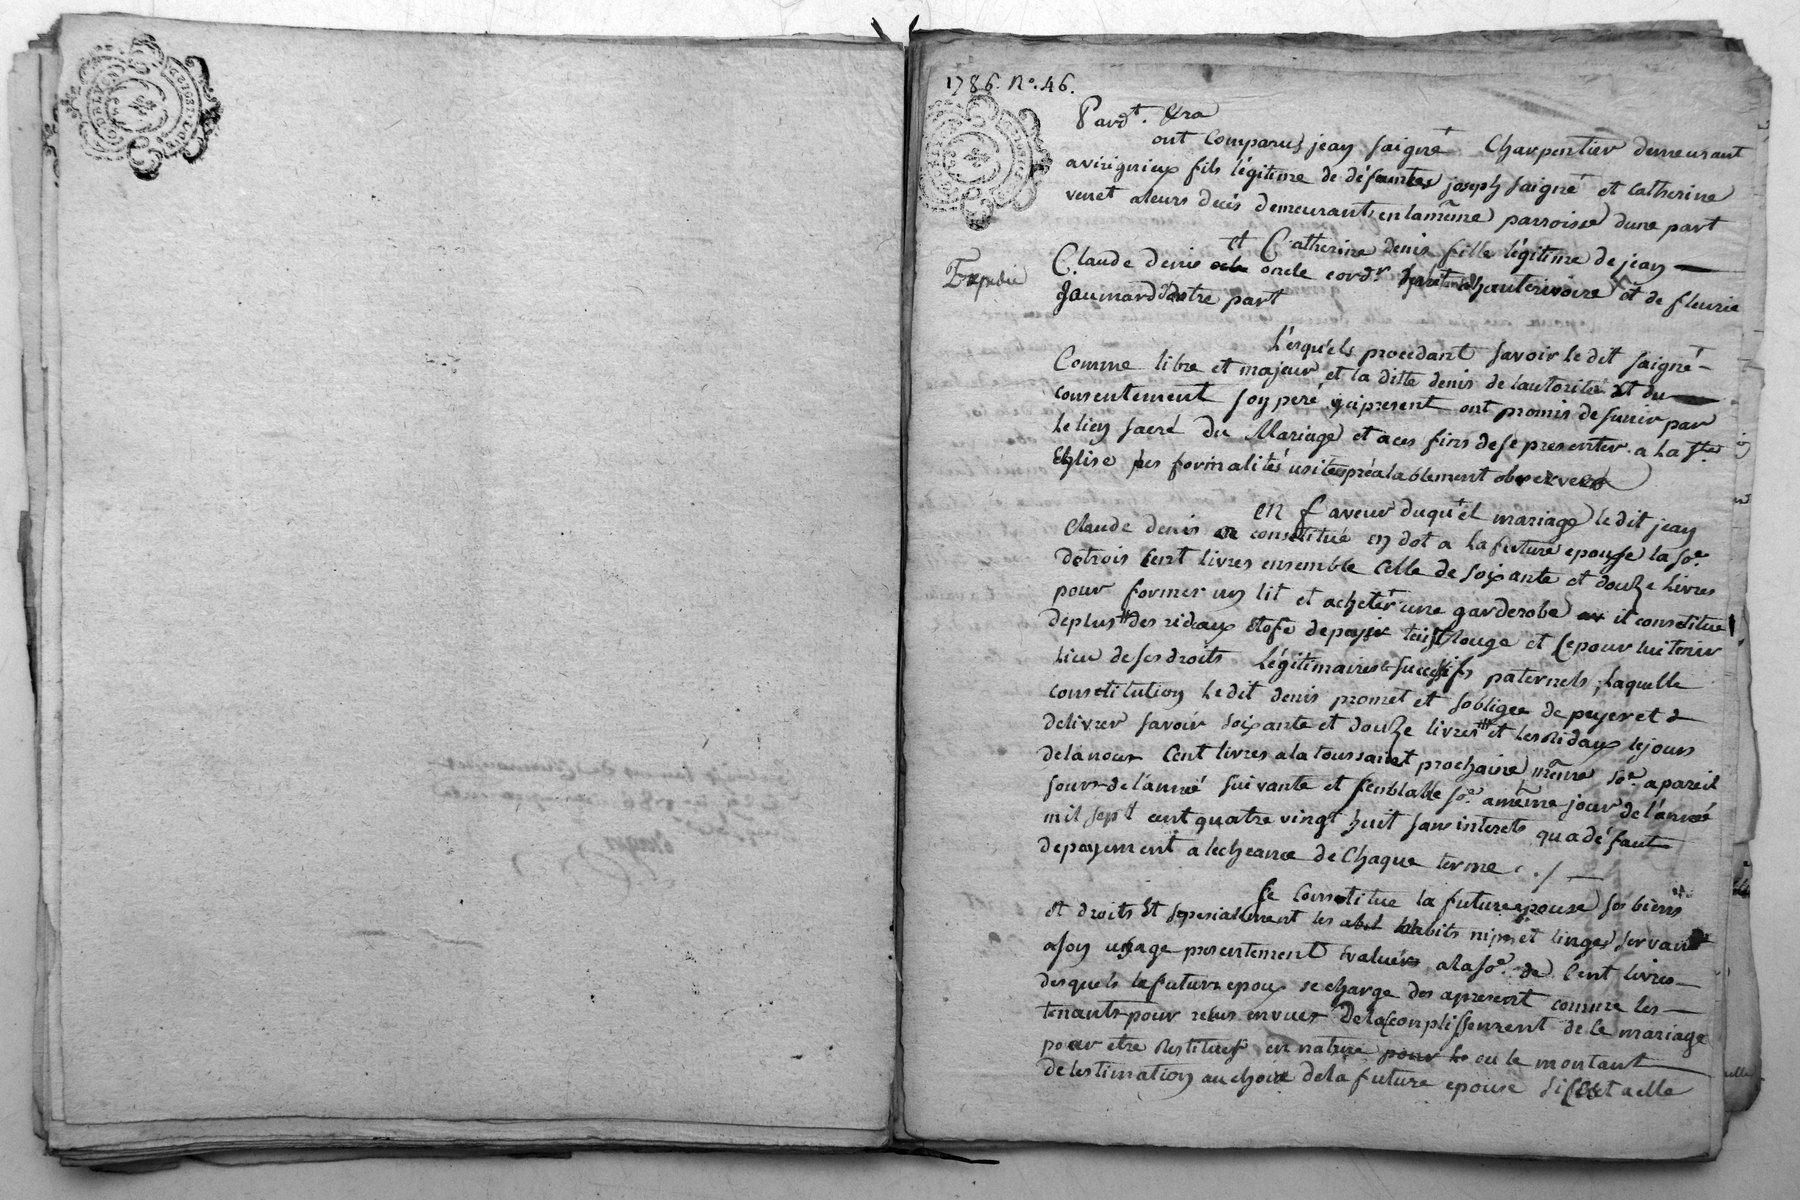 1786. N.º 46.
Pard.t &ra
ont Comparus jean Saigné Charpentier demeurant
a virignieux fils légitime de défuntes joseph Saigné et Catherine
venet a leurs decés demeurant en la même parroisse dune part
et Catherine denis fille légitime de jean
Claude denis oncle cord.r hauterivoire et de fleurie
Expedié
Gaumard dautre part
Lesquels procedant savoir le dit Saigné
Comme libre et majeur et la ditte denis de lautorité et du
consentement son pere ici present ont promis de sunir par
le lien sacré du Mariage et a ces fins de se presenter a la Ste
Eglise les formalités usitées préalablement observées
en faveur duquel mariage le dit jean
Claude denis a constitué en dot a la future epouse la so.e
de trois cent livres ensemble Celle de soixante et douze livres
pour former un lit et acheter une garderobe il constitue
de plus des rideaux étofe de payis teint rouge et ce pour lui tenir
Lieu de ses droits Légitimaires & successifs paternels, laquelle
constitution le dit denis promet et sobligee de payer et de
delivrer savoir soixante et douze livres et les Ridaux le jours
de la noces Cent livres a la toussaint prochaine même so.e a pareil
jours de l'anneé suivante et semblable so.e a même jour de l'année
mil sept cent quatre vingt huit sans interets qu a défaut
de payement a lecheance de Chaque terme ./.
Se Constitue la future epouse ses biens
et droits et specialement les habits nipes et linges servant
a son usage presentement evalués a la so.e de Cent livres
desquels le future epoux se charge des apresent comme les
tenants pour reçus en vues de lacomplissement de ce mariage
pour etre restitues en nature ou le montant
de lestimation au choix de la future epouse si cest a elle